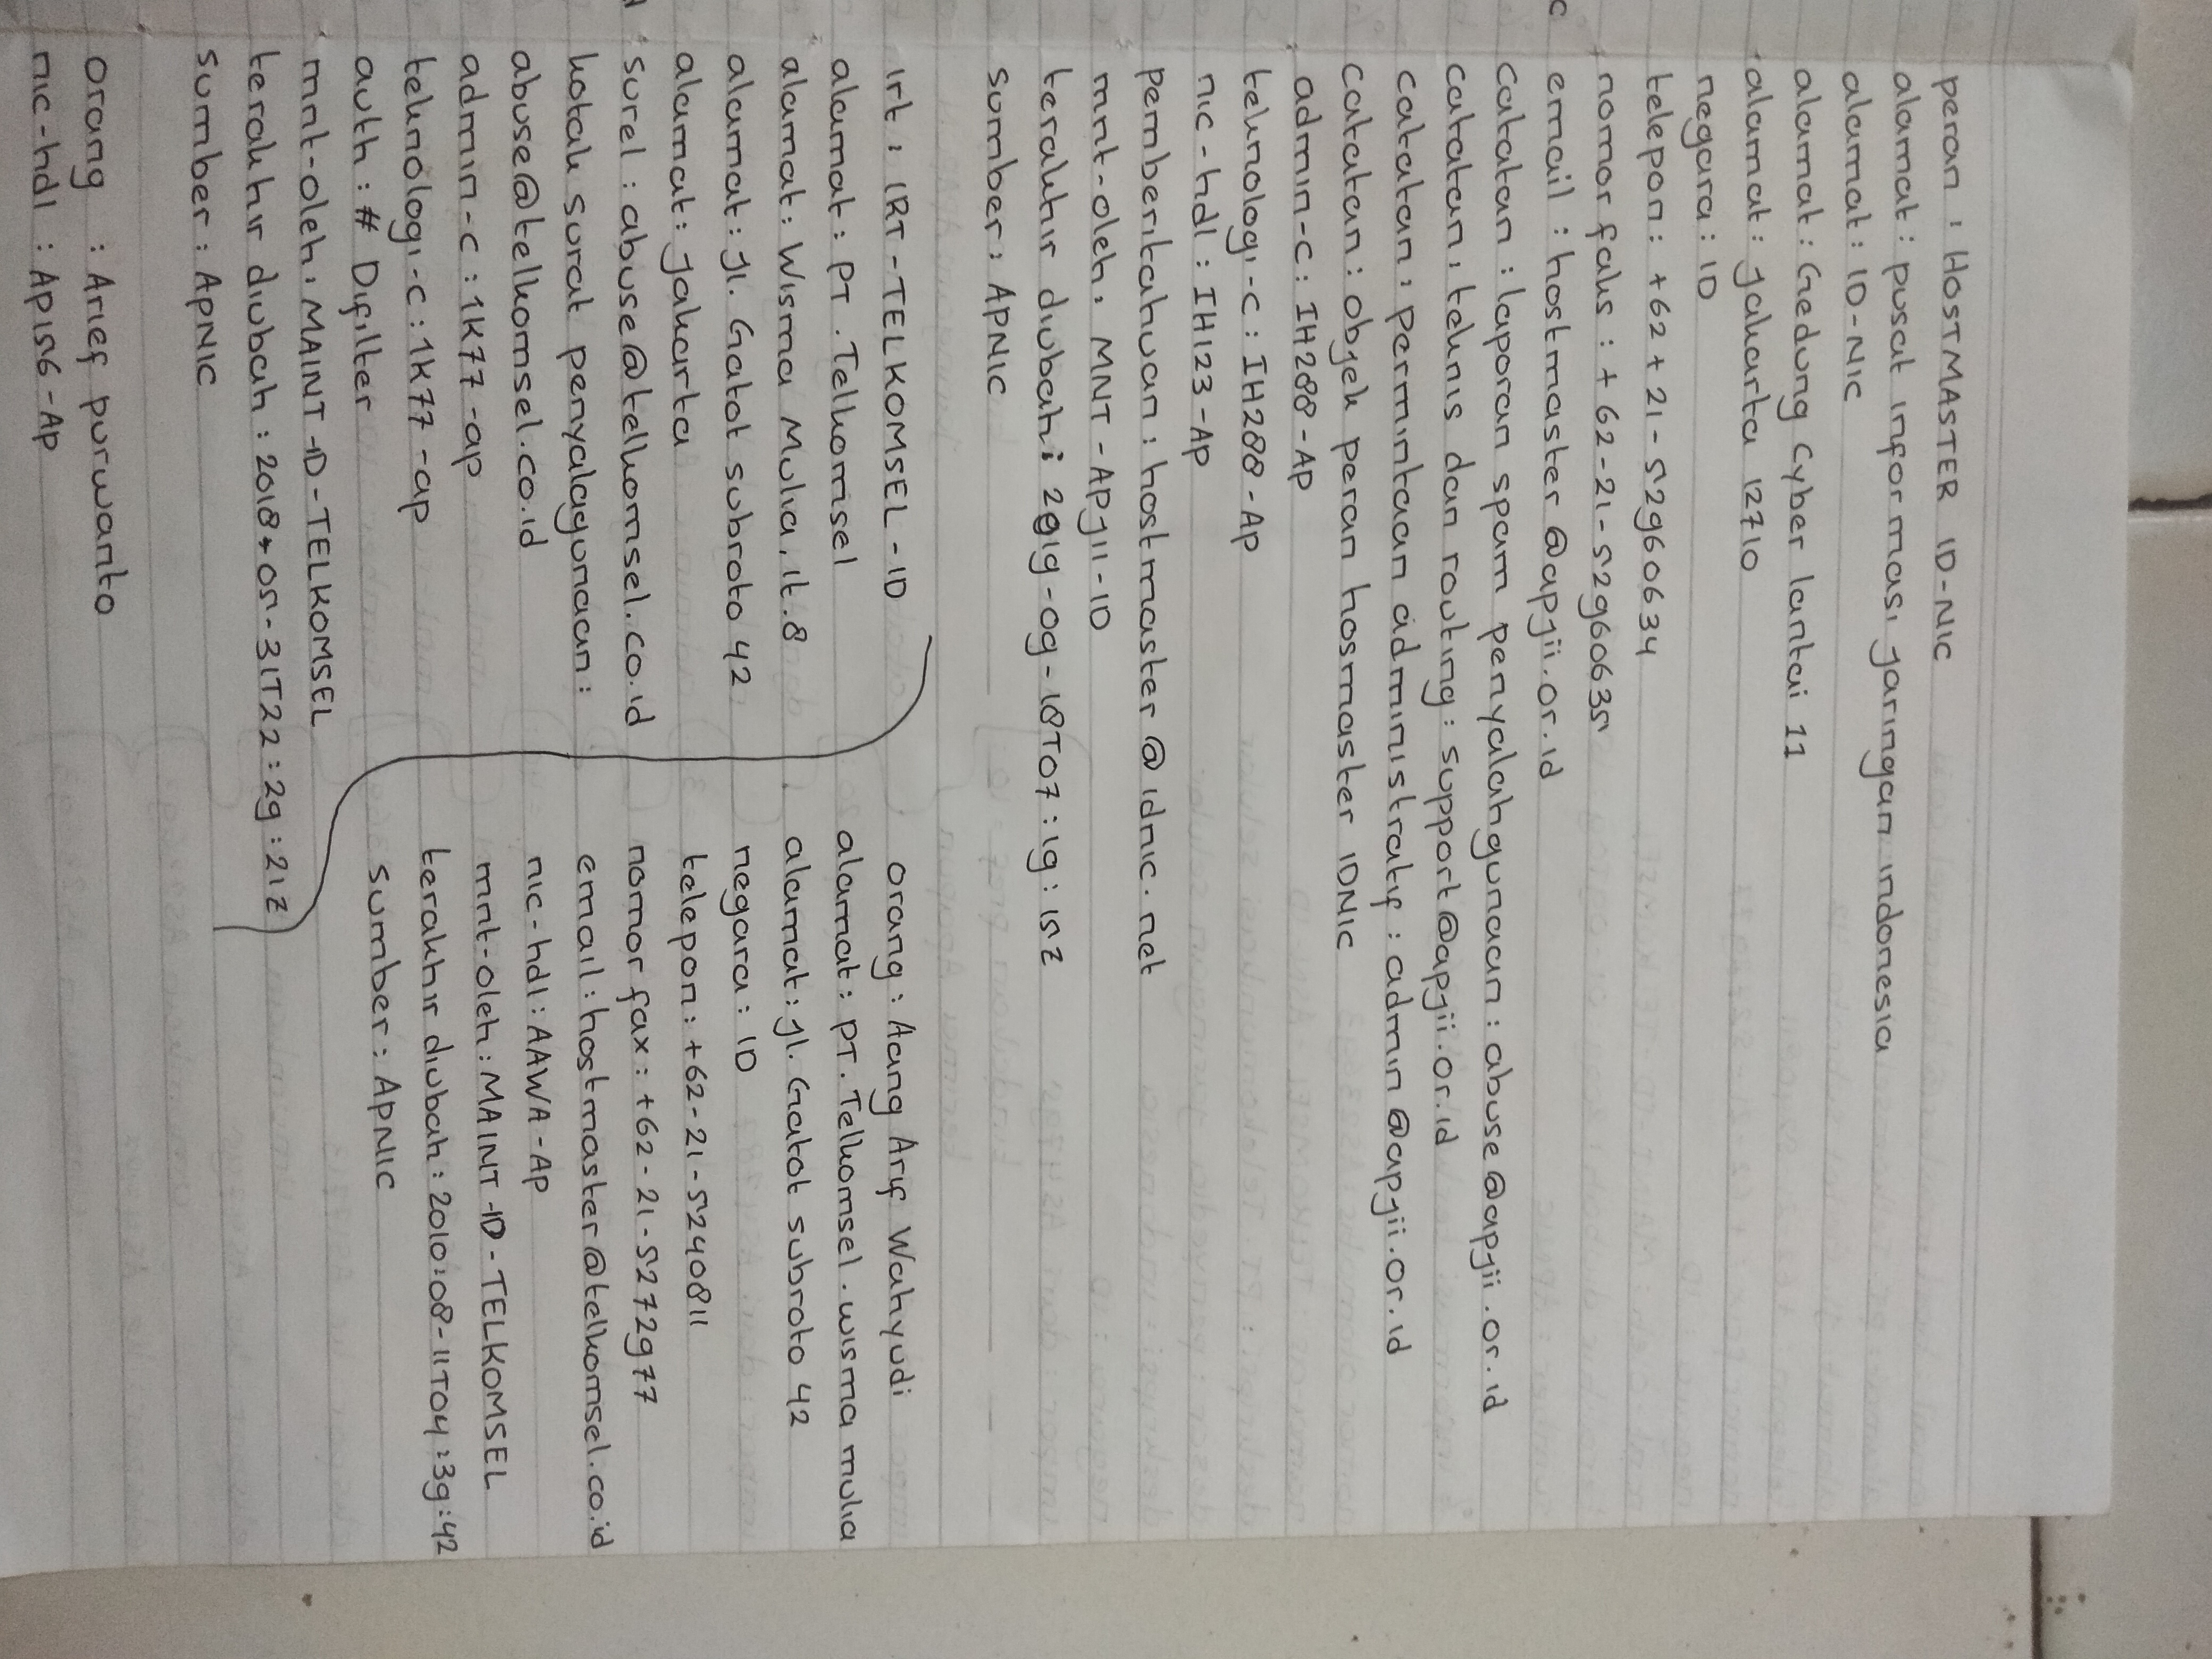 peran : HOSTMASTER ID-NIC
alamat : pusat informasi jaringan indonesia
alamat : ID-NIC
alamat : Gedung Cyber lantai 11
alamat : jakarta 12710
negara : ID
telepon : +62+21-52960634
nomor faks : +62-21-52960635
email : hostmaster@apjii.or.id
catatan : laporan spam penyalahgunaan : abuse@apjii.or.id
catatan : teknis dan routing : support@apjii.or.id
catatan : permintaan administratif : admin@apjii.or.id
catatan : objek peran hosmaster IDNIC
admin-c : IH288-AP
teknologi-c : IH288-AP
nic-hdl : IH123-AP
pemberitahuan : hostmaster@idnic.net
mnt-oleh : MNT-APJII-ID
terakhir diubah : 2019-09-18T07:19:15Z
sumber : APNIC
irt : IRT-TELKOMSEL-ID
alamat : PT. Telkomsel
alamat : Wisma Mulia, lt.8
alamat : jl. Gatot subroto 42
alamat : jakarta
surel : abuse@telkomsel.co.id
kotak surat penyalagunaan :
abuse@telkomsel.co.id
admin-c : 1K77-ap
teknologi-c : 1K77-ap
auth : # Difilter
mnt-oleh : MAINT-ID-TELKOMSEL
terakhir diubah : 2018+05-31T22:29:21Z
sumber : APNIC
orang : Aang Arif Wahyudi
alamat : PT. Telkomsel. wisma mulia
alamat : jl. Gatot subroto 42
negara : ID
telepon : +62-21-5240811
nomor fax : +62-21-5272977
email : hostmaster@telkomsel.co.id
nic-hdl : AAWA-AP
mnt-oleh : MAINT-ID-TELKOMSEL
terakhir diubah : 2010:08-11T04:39:42
sumber : APNIC
orang : Arief purwanto
nic-hdl : AP156-AP